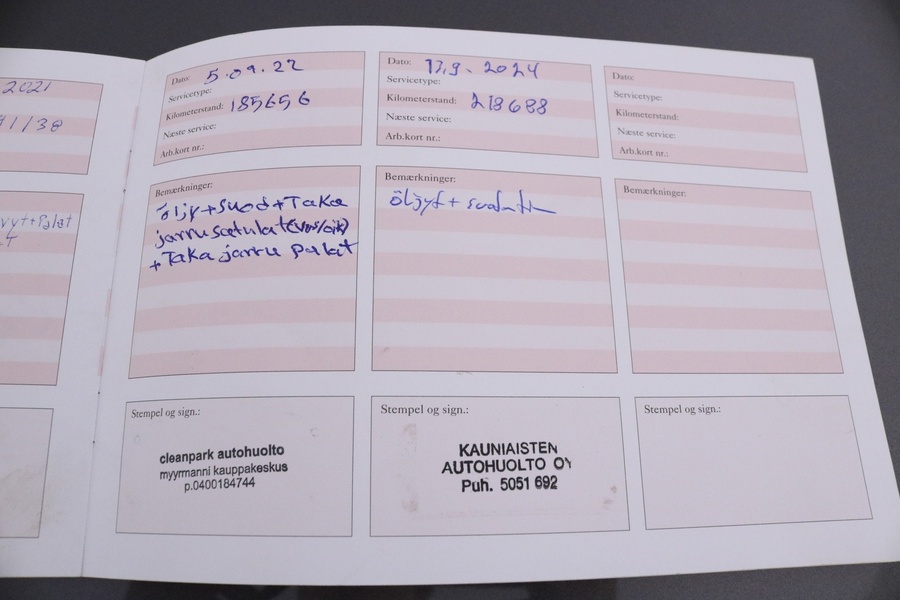 2021
Dato: 5.09.22
Servicetype:
Kilometerstand: 185656
Næste service:
Arb.kort nr.:
Bemærkninger:
öljy+suod+Taka
jarrusatulat(vas/oik)
+Taka jarru palat
Stempel og sign.:
cleanpark autohuolto
myyrmanni kauppakeskus
p.0400184744
Dato: 17.9. 2024
Servicetype:
Kilometerstand: 218688
Næste service:
Arb.kort nr.:
Bemærkninger:
öljyt +
Stempel og sign.:
KAUNIAISTEN
AUTOHUOLTO OY
Puh. 5051 692
Dato:
Servicetype:
Kilometerstand:
Næste service:
Arb.kort nr.:
Bemærkninger:
Stempel og sign.: